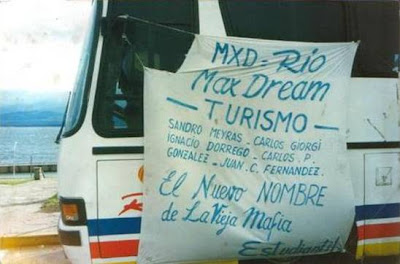 MXD - Rio
Max Dream
- TURISMO -
SANDRO MEYRAS - CARLOS GIORGI
IGNACIO DORREGO - CARLOS P.
GONZALEZ - JUAN C. FERNANDEZ.
El Nuevo NOMBRE
de La Vieja Mafia
Estudiantil